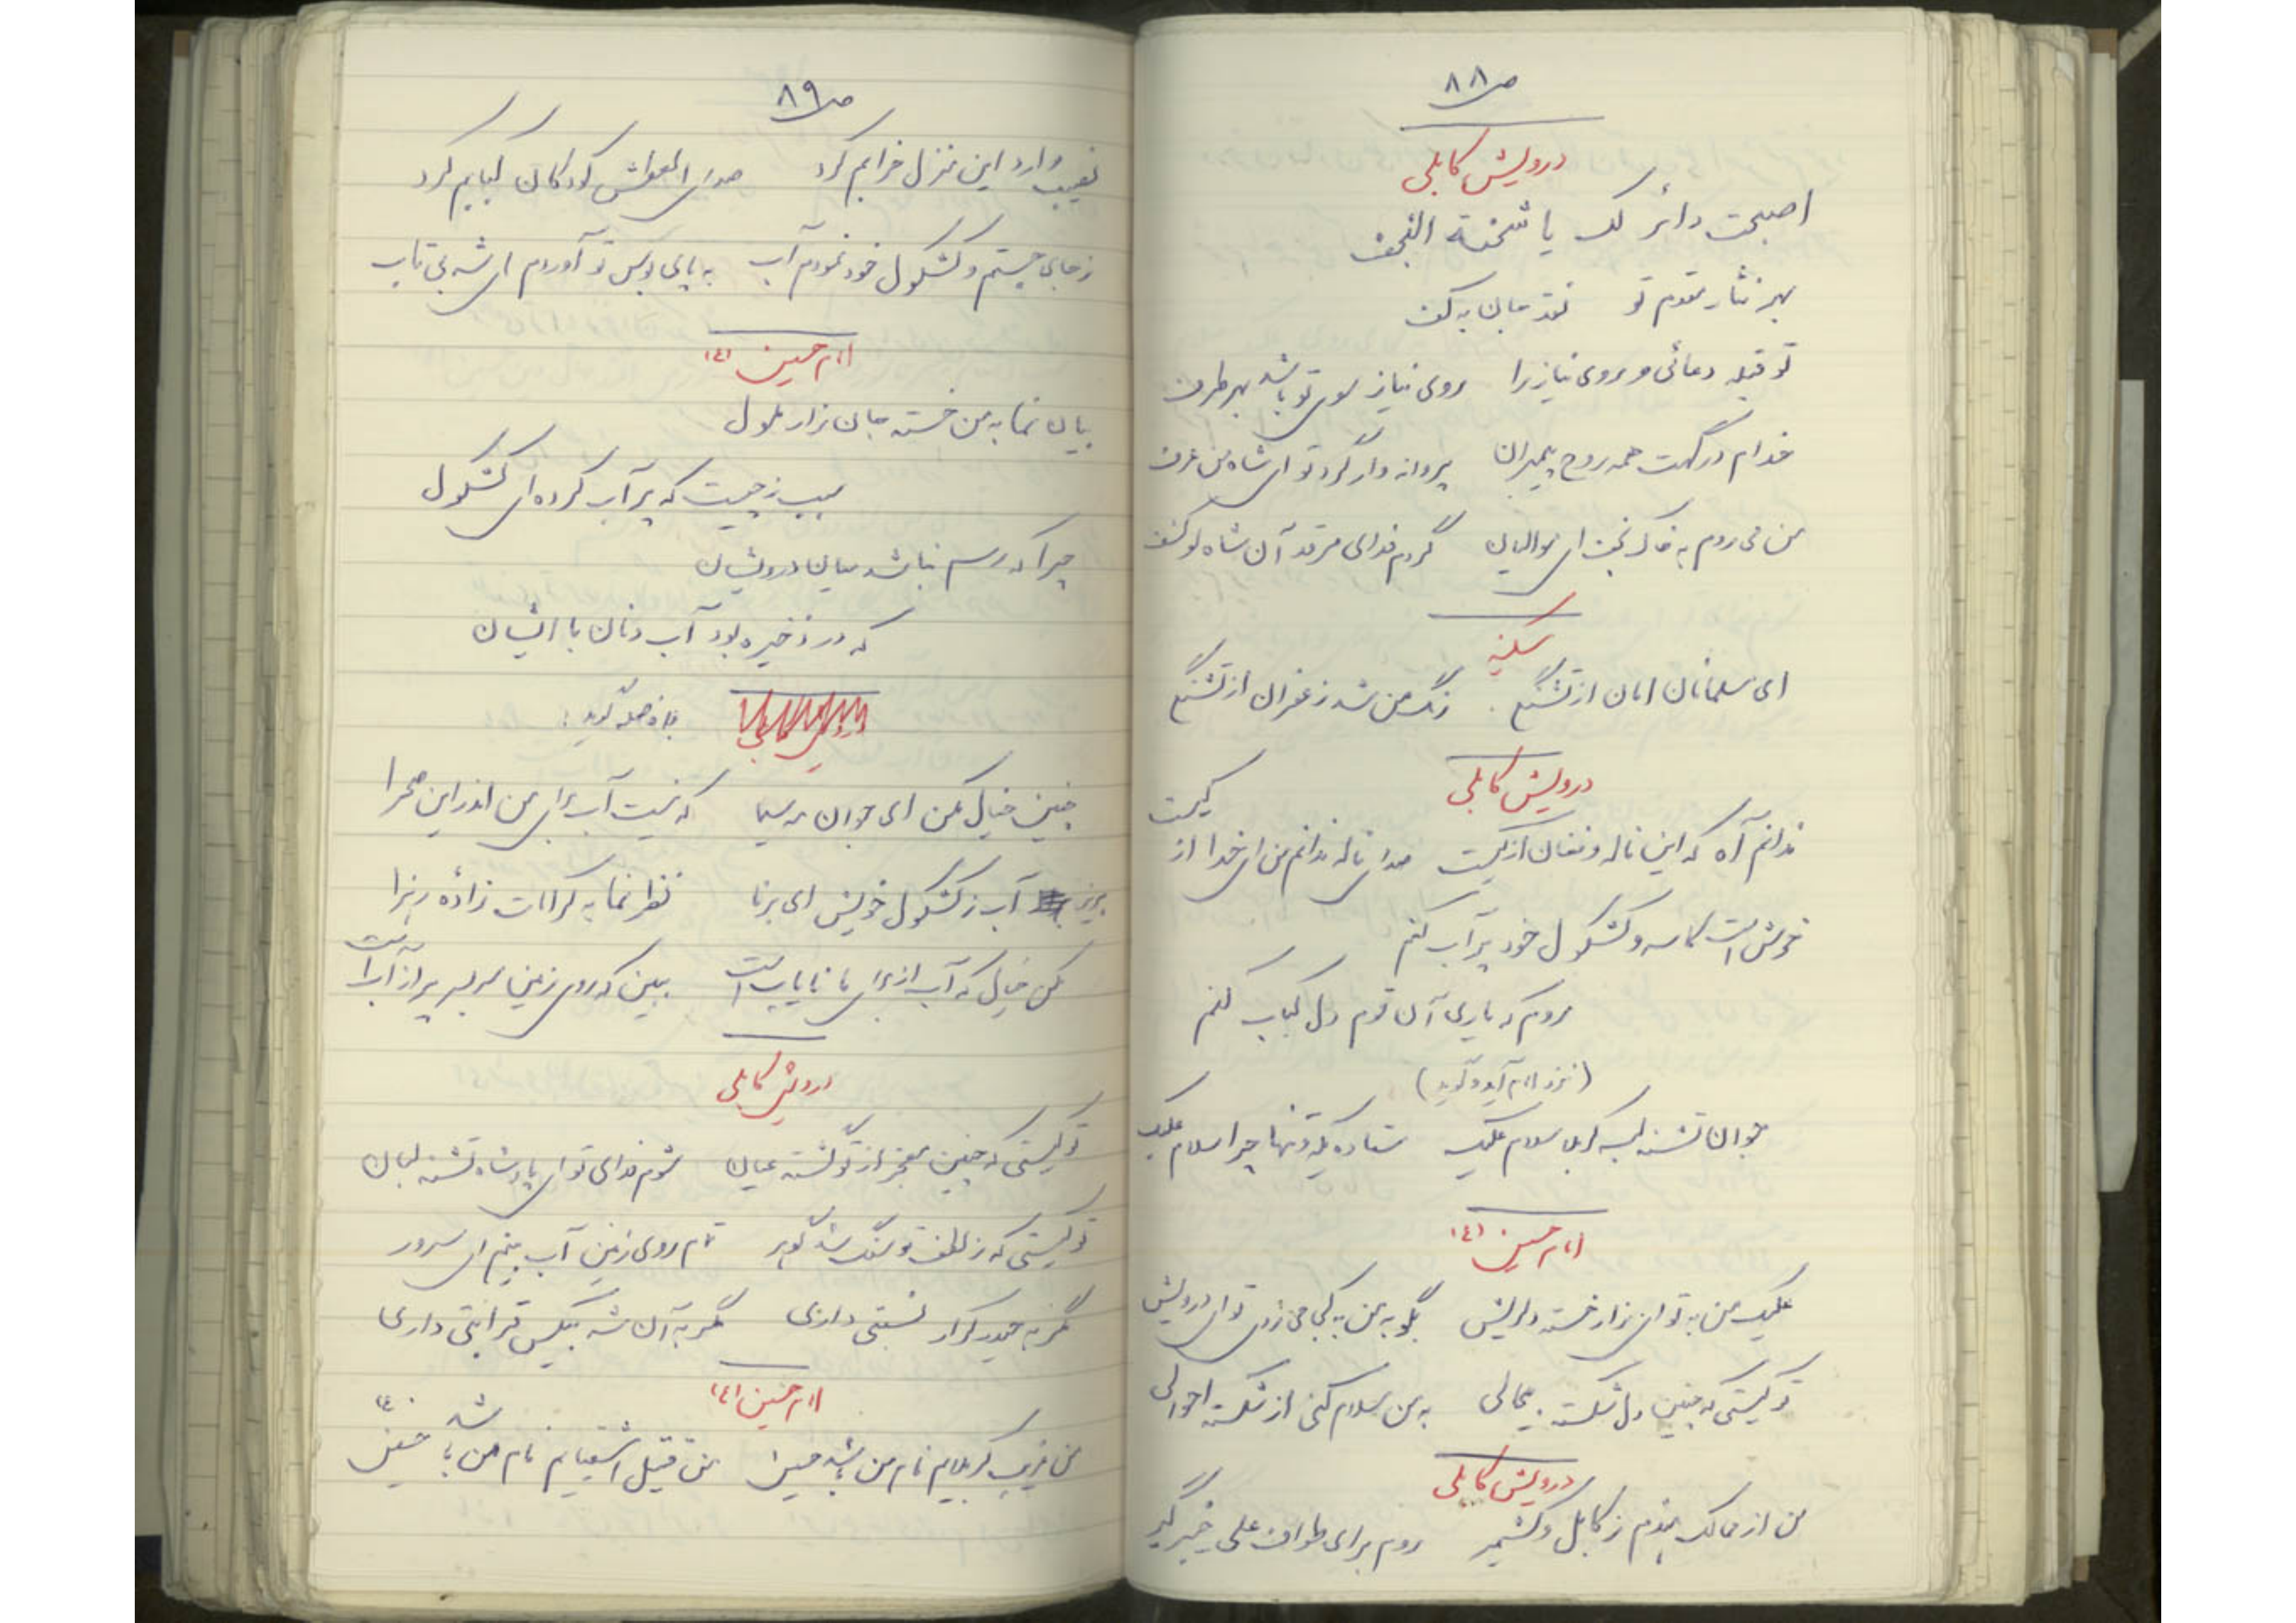 ص ۸۸
درویش کابلی
اصبحت زائر لک یا شحنة النجف
بهر نثار مقدم تو نقد جان به کف
تو قبله دعائی و روی نیاز را روی نیاز سوی تو باشد بهر طرف
خدام درگهت همه روح پیمبران پروانه وار گرد تو ای شاه من عرف
من می روم به خاک نجف ای موالیان گردم فدای مرقد آن شاه لو کشف
سکینه
ای مسلمانان امان از تشنگی رنگ من شد زعفران از تشنگی
درویش کابلی
ندانم آه که این ناله و فغان از کیست صدای ناله ندانم من ای خدا از کیست
خوش است کاسه و کشکول خود پر آب کنم
روم که یاری آن قوم دل کباب کنم
(نزد امام آید و گوید)
جوان تشنه لب کربلا سلام علیک ستاده یکه و تنها چرا سلام علیک
امام حسین (ع)
علیک من به تو ای زار خسته دلریش بگو به من به کجا می روی تو ای درویش
تو کیستی که چنین دل شکسته می نالی به من سلام کنی از شکسته احوالی
درویش کابلی
من از ممالک هندم ز کابل و کشمیر روم برای طواف علی خیبر گیر
ص ۸۹
نصیب وارد این منزل خرابم کرد صدای العطش کودکان کبابم کرد
ز جای جستم و کشکول خود نمودم آب به پای بوس تو آوردم ای شه بی تاب
امام حسین (ع)
بیان نما به من خسته جان زار ملول
سبب ز چیست که پر آب کرده ای کشکول
چرا که رسم نباشد میان درویشان
که در ذخیره بود آب و نان با ایشان
چنین خیال مکن ای جوان مه سیما که نیست آب برای من اندر این صحرا
بریز آب ز کشکول خویش ای برنا نظر نما به کرامات زاده زهرا
مکن خیال که آب از برای ما نایاب است ببین که روی زمین سر به سر پر از آب است
درویش کابلی
تو کیستی که چنین معجز از تو گشته عیان شوم فدای تو ای پادشاه تشنه لبان
تو کیستی که ز لطف تو سنگ شد گوهر تمام روی زمین آب بینم ای سرور
مگر به حیدر کرار نسبتی داری مگر به آن شه بیکس قرابتی داری
امام حسین (ع)
من غریب کربلایم نام من باشد حسین من قتیل اشقیایم نام من باشد حسین